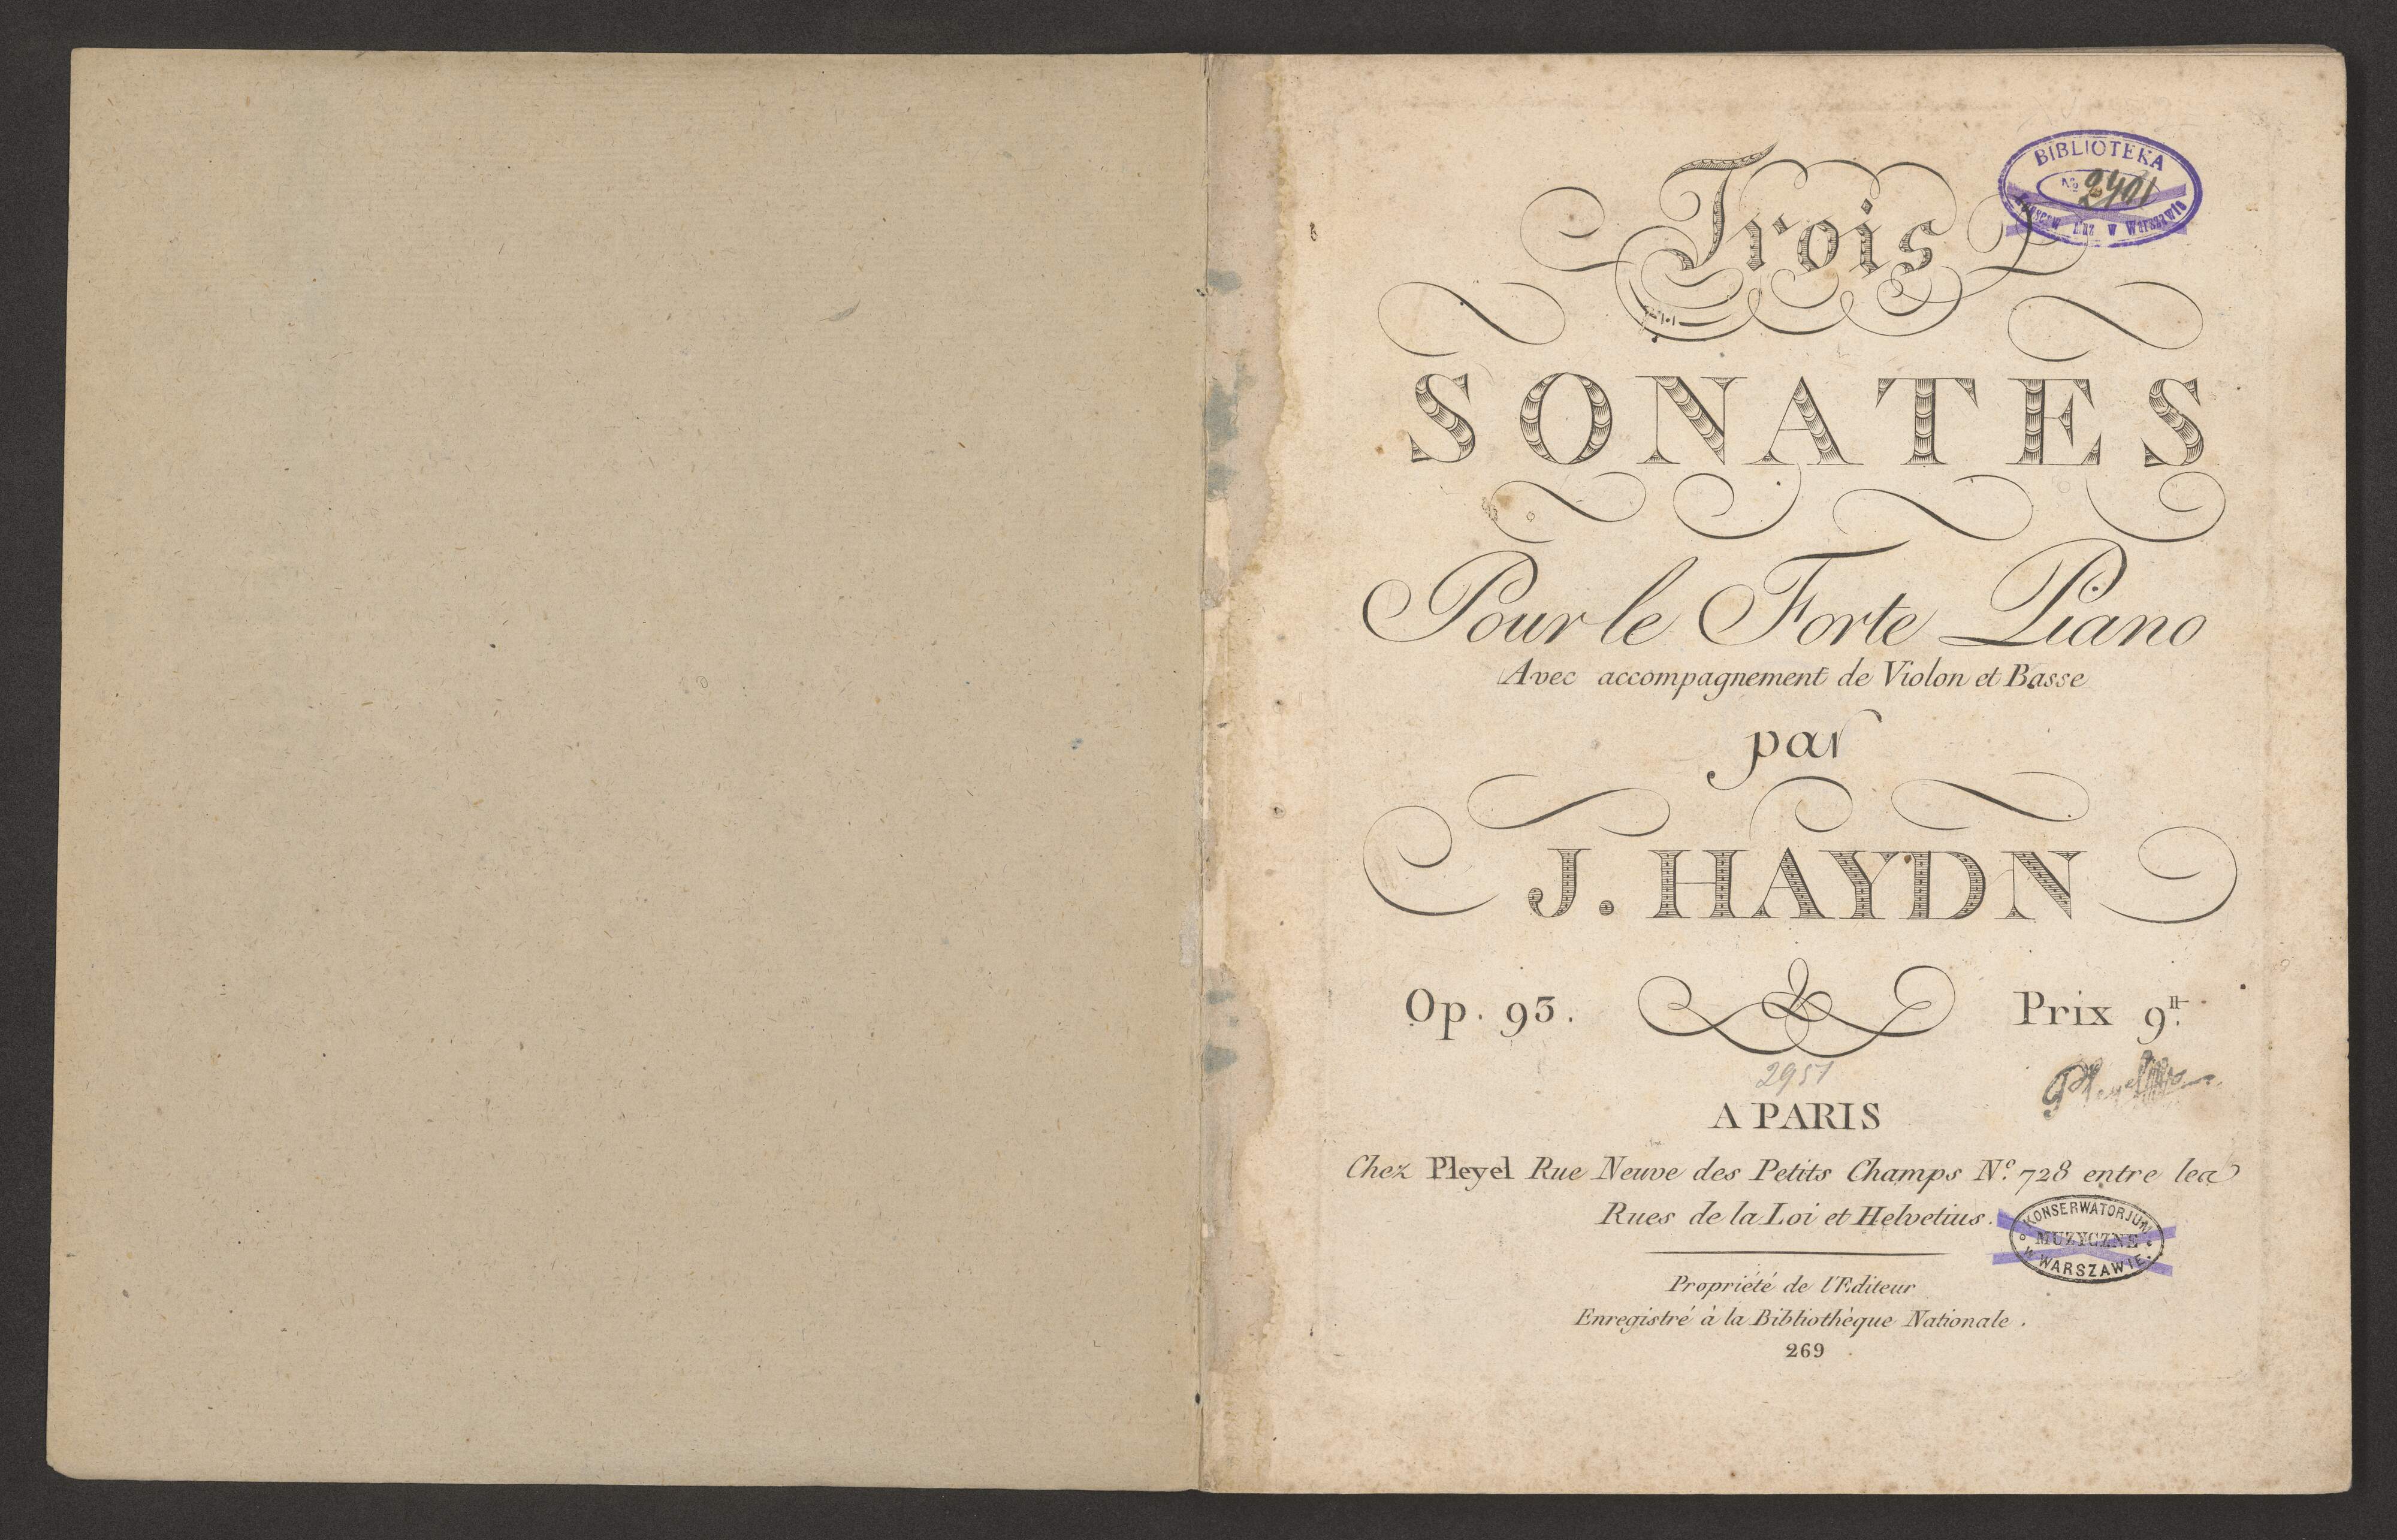 Trois
BIBLIOTEKA
No 2401
w Warszawie
SONATES
Pour le Forte Piano
Avec accompagnement de Violon et Basse
par
J. HAYDN
Op. 93. Prix 9tt.
2951
A PARIS
Chez Pleyel Rue Neuve des Petits Champs No. 728 entre les
Rues de la Loi et Helvetius.
KONSERWATORJUM
MUZYCZNE
W WARSZAWIE
Propriété de l'Editeur
Enregistré à la Bibliothèque Nationale.
269